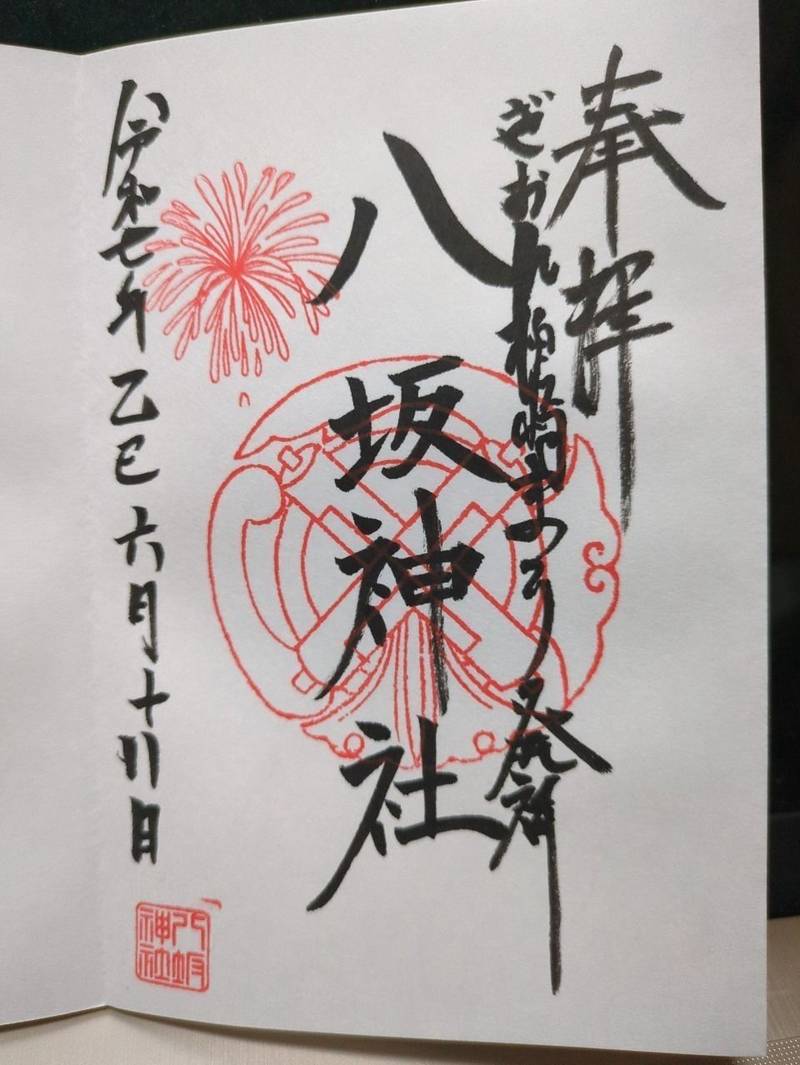 奉拝
ぎおん柏崎まつり 発祥
八坂神社
令和七年 乙巳 六月十 日
八坂
神社